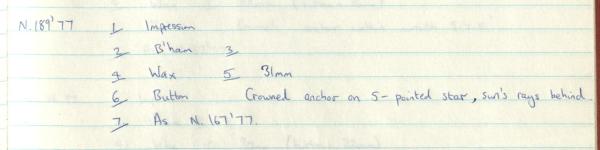 N.189'77 1 Impression
2 B'ham 3
4 Wax 5 31mm
6 Button Crowned anchor on 5-pointed star, sun's rays behind.
7 As N.167'77.